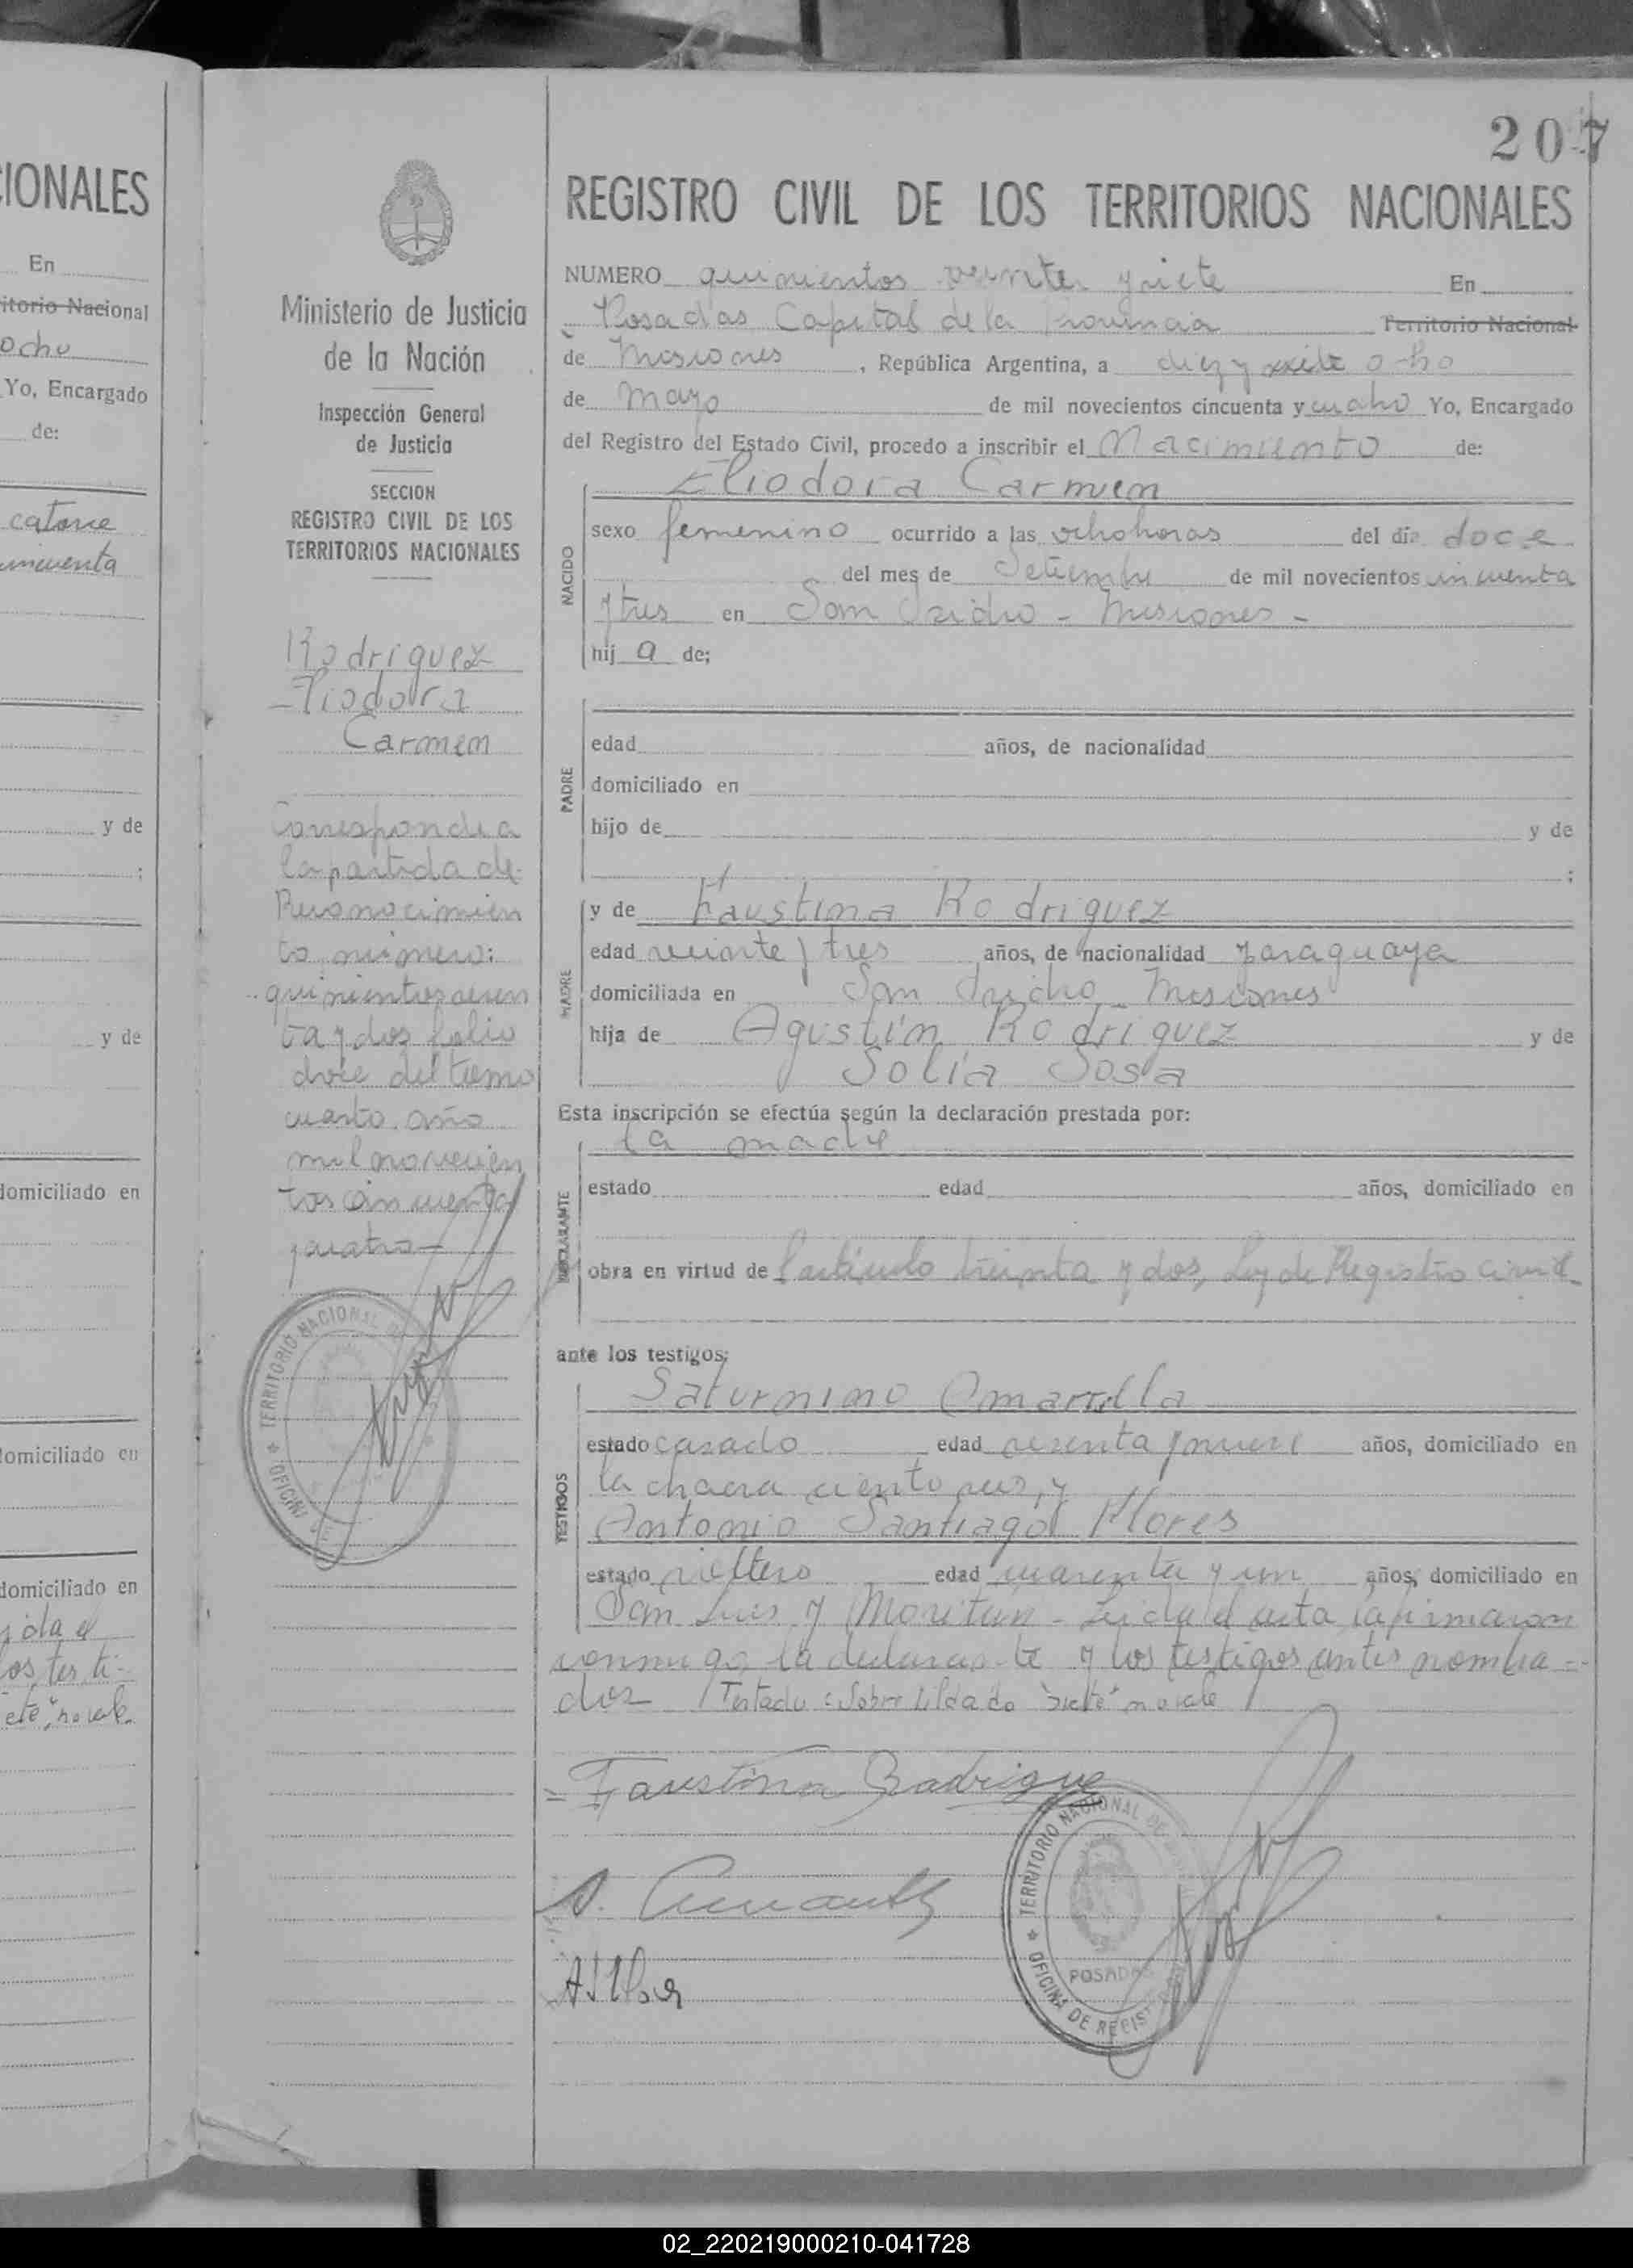 CIONALES
En
itorio Nacional
ocho
Yo, Encargado
de:
catorce
incuenta
y de
;
y de
domiciliado en
domiciliado en
domiciliado en
ida el
los testi-
ete", no vale.
Ministerio de Justicia
de la Nación
Inspección General
de Justicia
SECCION
REGISTRO CIVIL DE LOS
TERRITORIOS NACIONALES
Rodriguez
Eliodora
Carmen
Corresponde a
la partida de
Reconocimien
to número:
quinientos sesen
ta y dos folio
doce del tomo
cuarto año
mil novecien
tos cincuenta
y cuatro-
TERRITORIO NACIONAL
OFICINA
207
REGISTRO CIVIL DE LOS TERRITORIOS NACIONALES
NUMERO quinientos veinte y siete En
Posadas Capital de la Provincia Territorio Nacional
de Misiones, República Argentina, a diez y siete ocho
de mayo de mil novecientos cincuenta y cuatro Yo, Encargado
del Registro del Estado Civil, procedo a inscribir el Nacimiento de:
NACIDO
Eliodora Carmen
sexo femenino ocurrido a las ocho horas del día doce
del mes de Setiembre de mil novecientos cincuenta
y tres en San Isidro - Misiones -
hij a de;
PADRE
edad años, de nacionalidad
domiciliado en
hijo de y de
;
MADRE
y de Faustina Rodriguez
edad veinte y tres años, de nacionalidad paraguaya
domiciliada en San Isidro - Misiones
hija de Agustín Rodriguez y de
Solia Sosa
Esta inscripción se efectúa según la declaración prestada por:
DECLARANTE
la madre
estado edad años, domiciliado en
obra en virtud de l'artículo treinta y dos, Ley de Registro Civil
ante los testigos;
TESTIGOS
Saturnino Amarilla
estado casado edad sesenta y nueve años, domiciliado en
la chacra ciento seis, y
Antonio Santiago Flores
estado soltero edad cuarenta y un años, domiciliado en
San Luis y Moritan - Leida el acta la firmaron
conmigo la declarante y los testigos antes nombra-
dos Testado: Sobre tildado "siete" no vale
Faustina Rodrigue
TERRITORIO NACIONAL DE
POSADAS
OFICINA DE REGIST
02_220219000210-041728